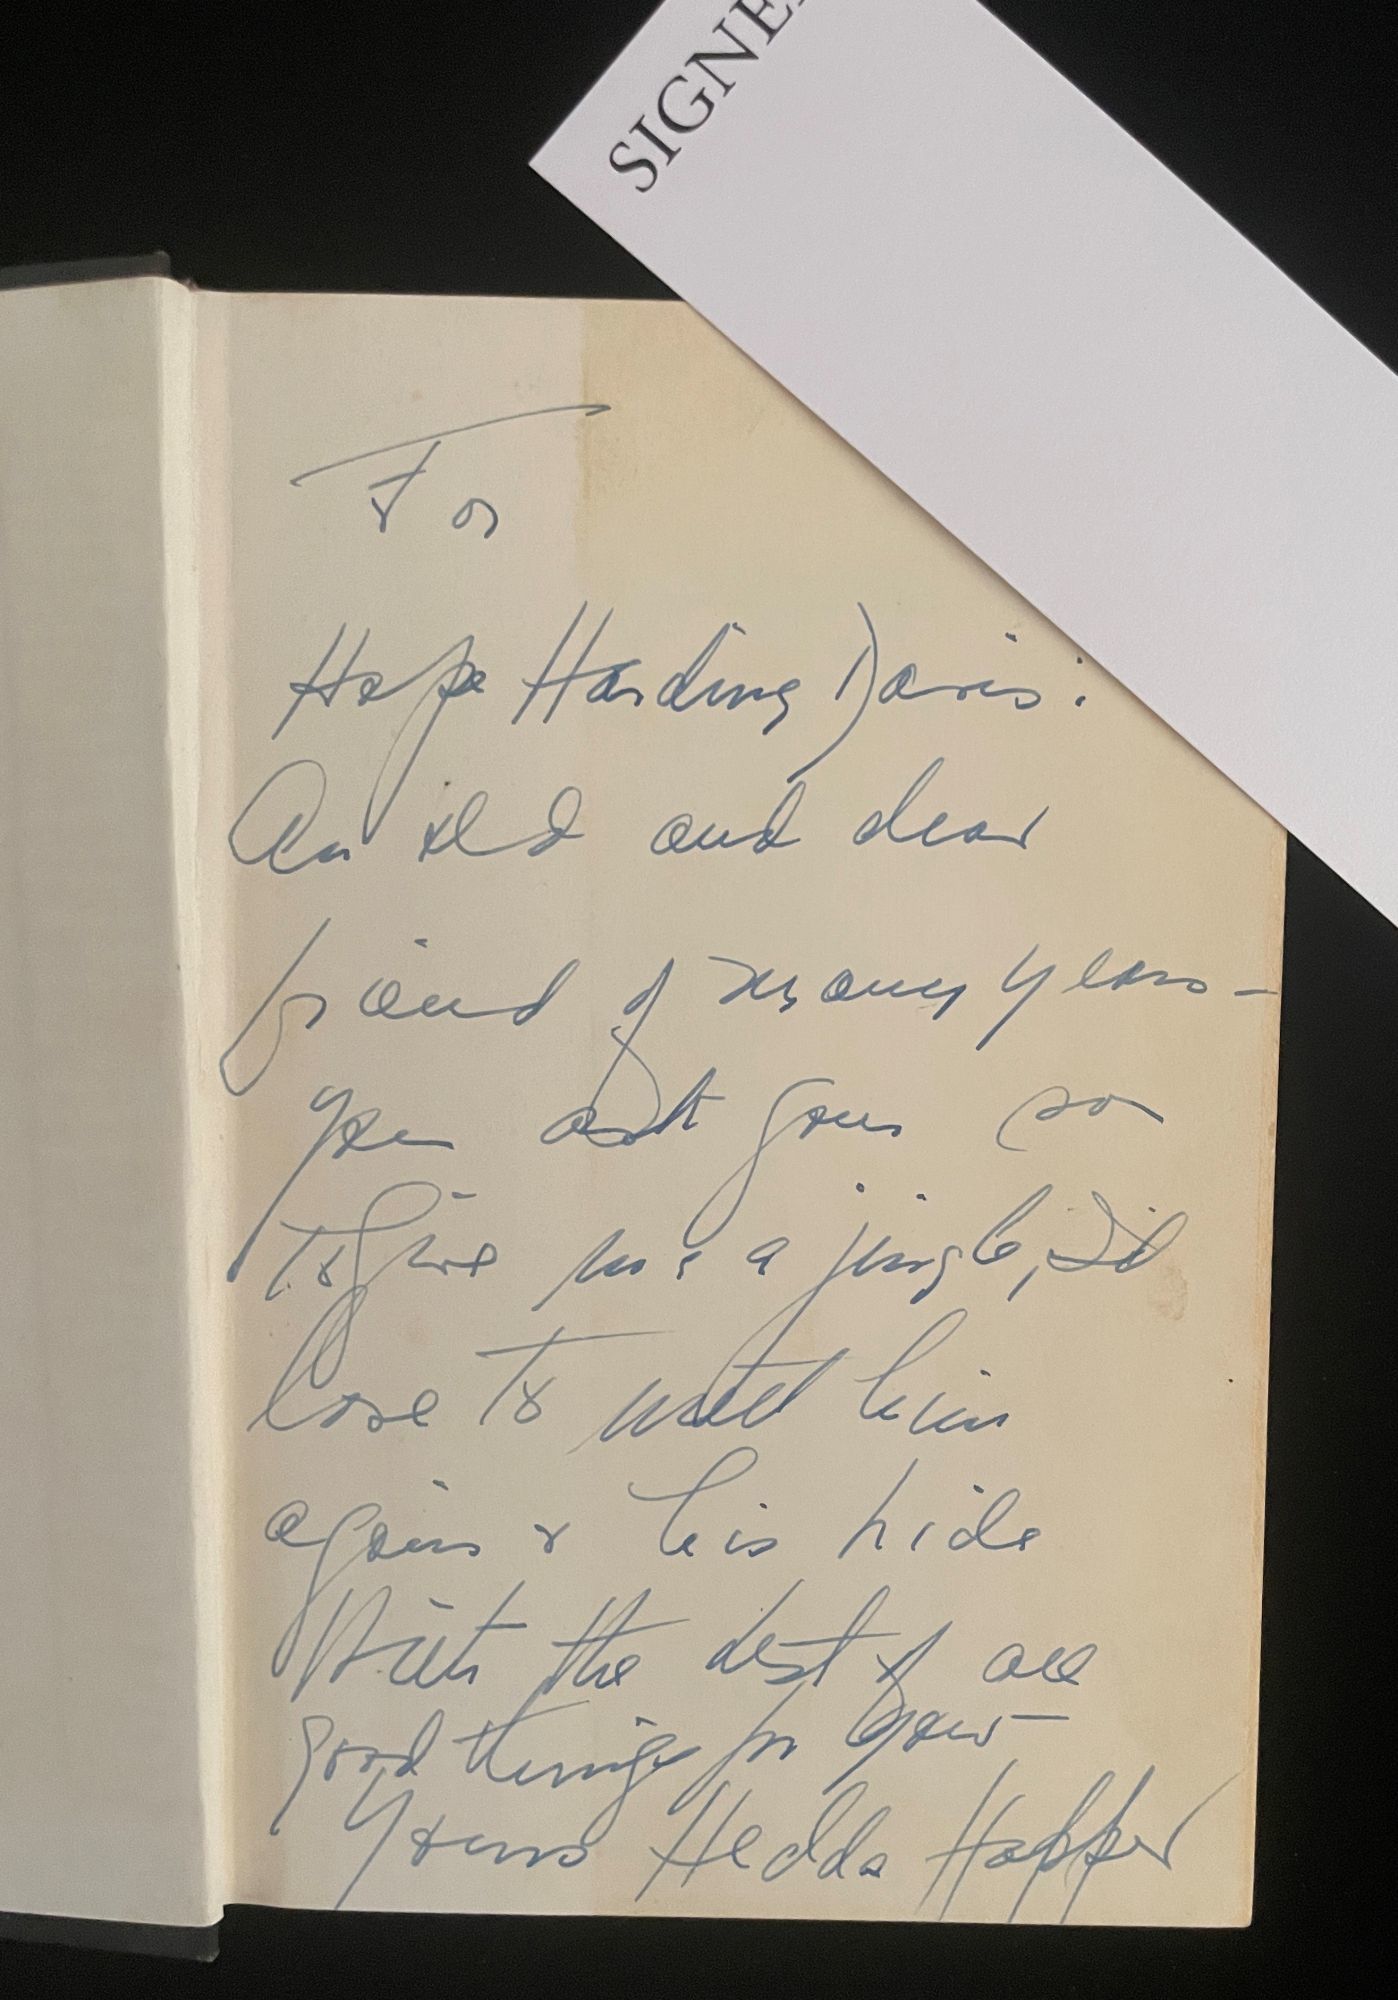 SIGNE
For
Hope Harding Davis:
An old and dear
friend of many years -
You ask your son
to give me a jingle, I'd
love to meet him
again & his bride
With the best of all
good things for you -
Yours Hedda Hopper